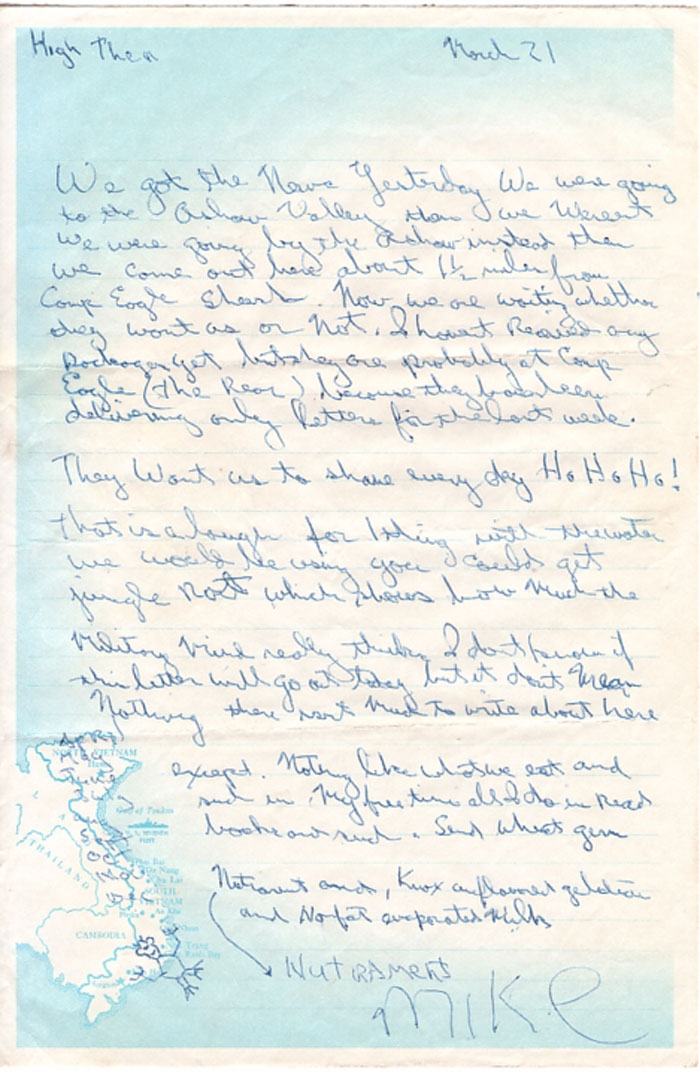 High Then March 21
We got the News Yesterday We were going
to the Ashaw Valley then we Werent
We were going by the Ashaw instead then
we come out here about 1½ miles from
Camp Eagle Shark. Now we are waiting whether
they want us or Not. I havent Recived any
Packages yet but they are probably at Camp
Eagle (The Rear) because they have been
delivering only letters for the last week.
They Want us to shave every day Ho Ho Ho!
That is a laugh for 1 thing with the water
we would be using you could get
jungle Rott which shows how Much the
Military Mind really thinks I dont know if
this letter will go out today but it dont Mean
Nothing there isnt Much to write about here
except. Nothing like what we eat and
such in. My free time all I do is Read
books and such. Send Wheat germ
Nutrament and, Knox unflavored gelatin
and Nofat evaporated Milk
NUTRAMENT
MIKE
April
May
June
July
Sept
Oct
Nov
NORTH VIETNAM
LAOS
THAILAND
Gulf of Tonkin
U.S. SEVENTH
FLEET
Phu Bai
Da Nang
Chu Lai
SOUTH
VIETNAM
An Khe
CAMBODIA